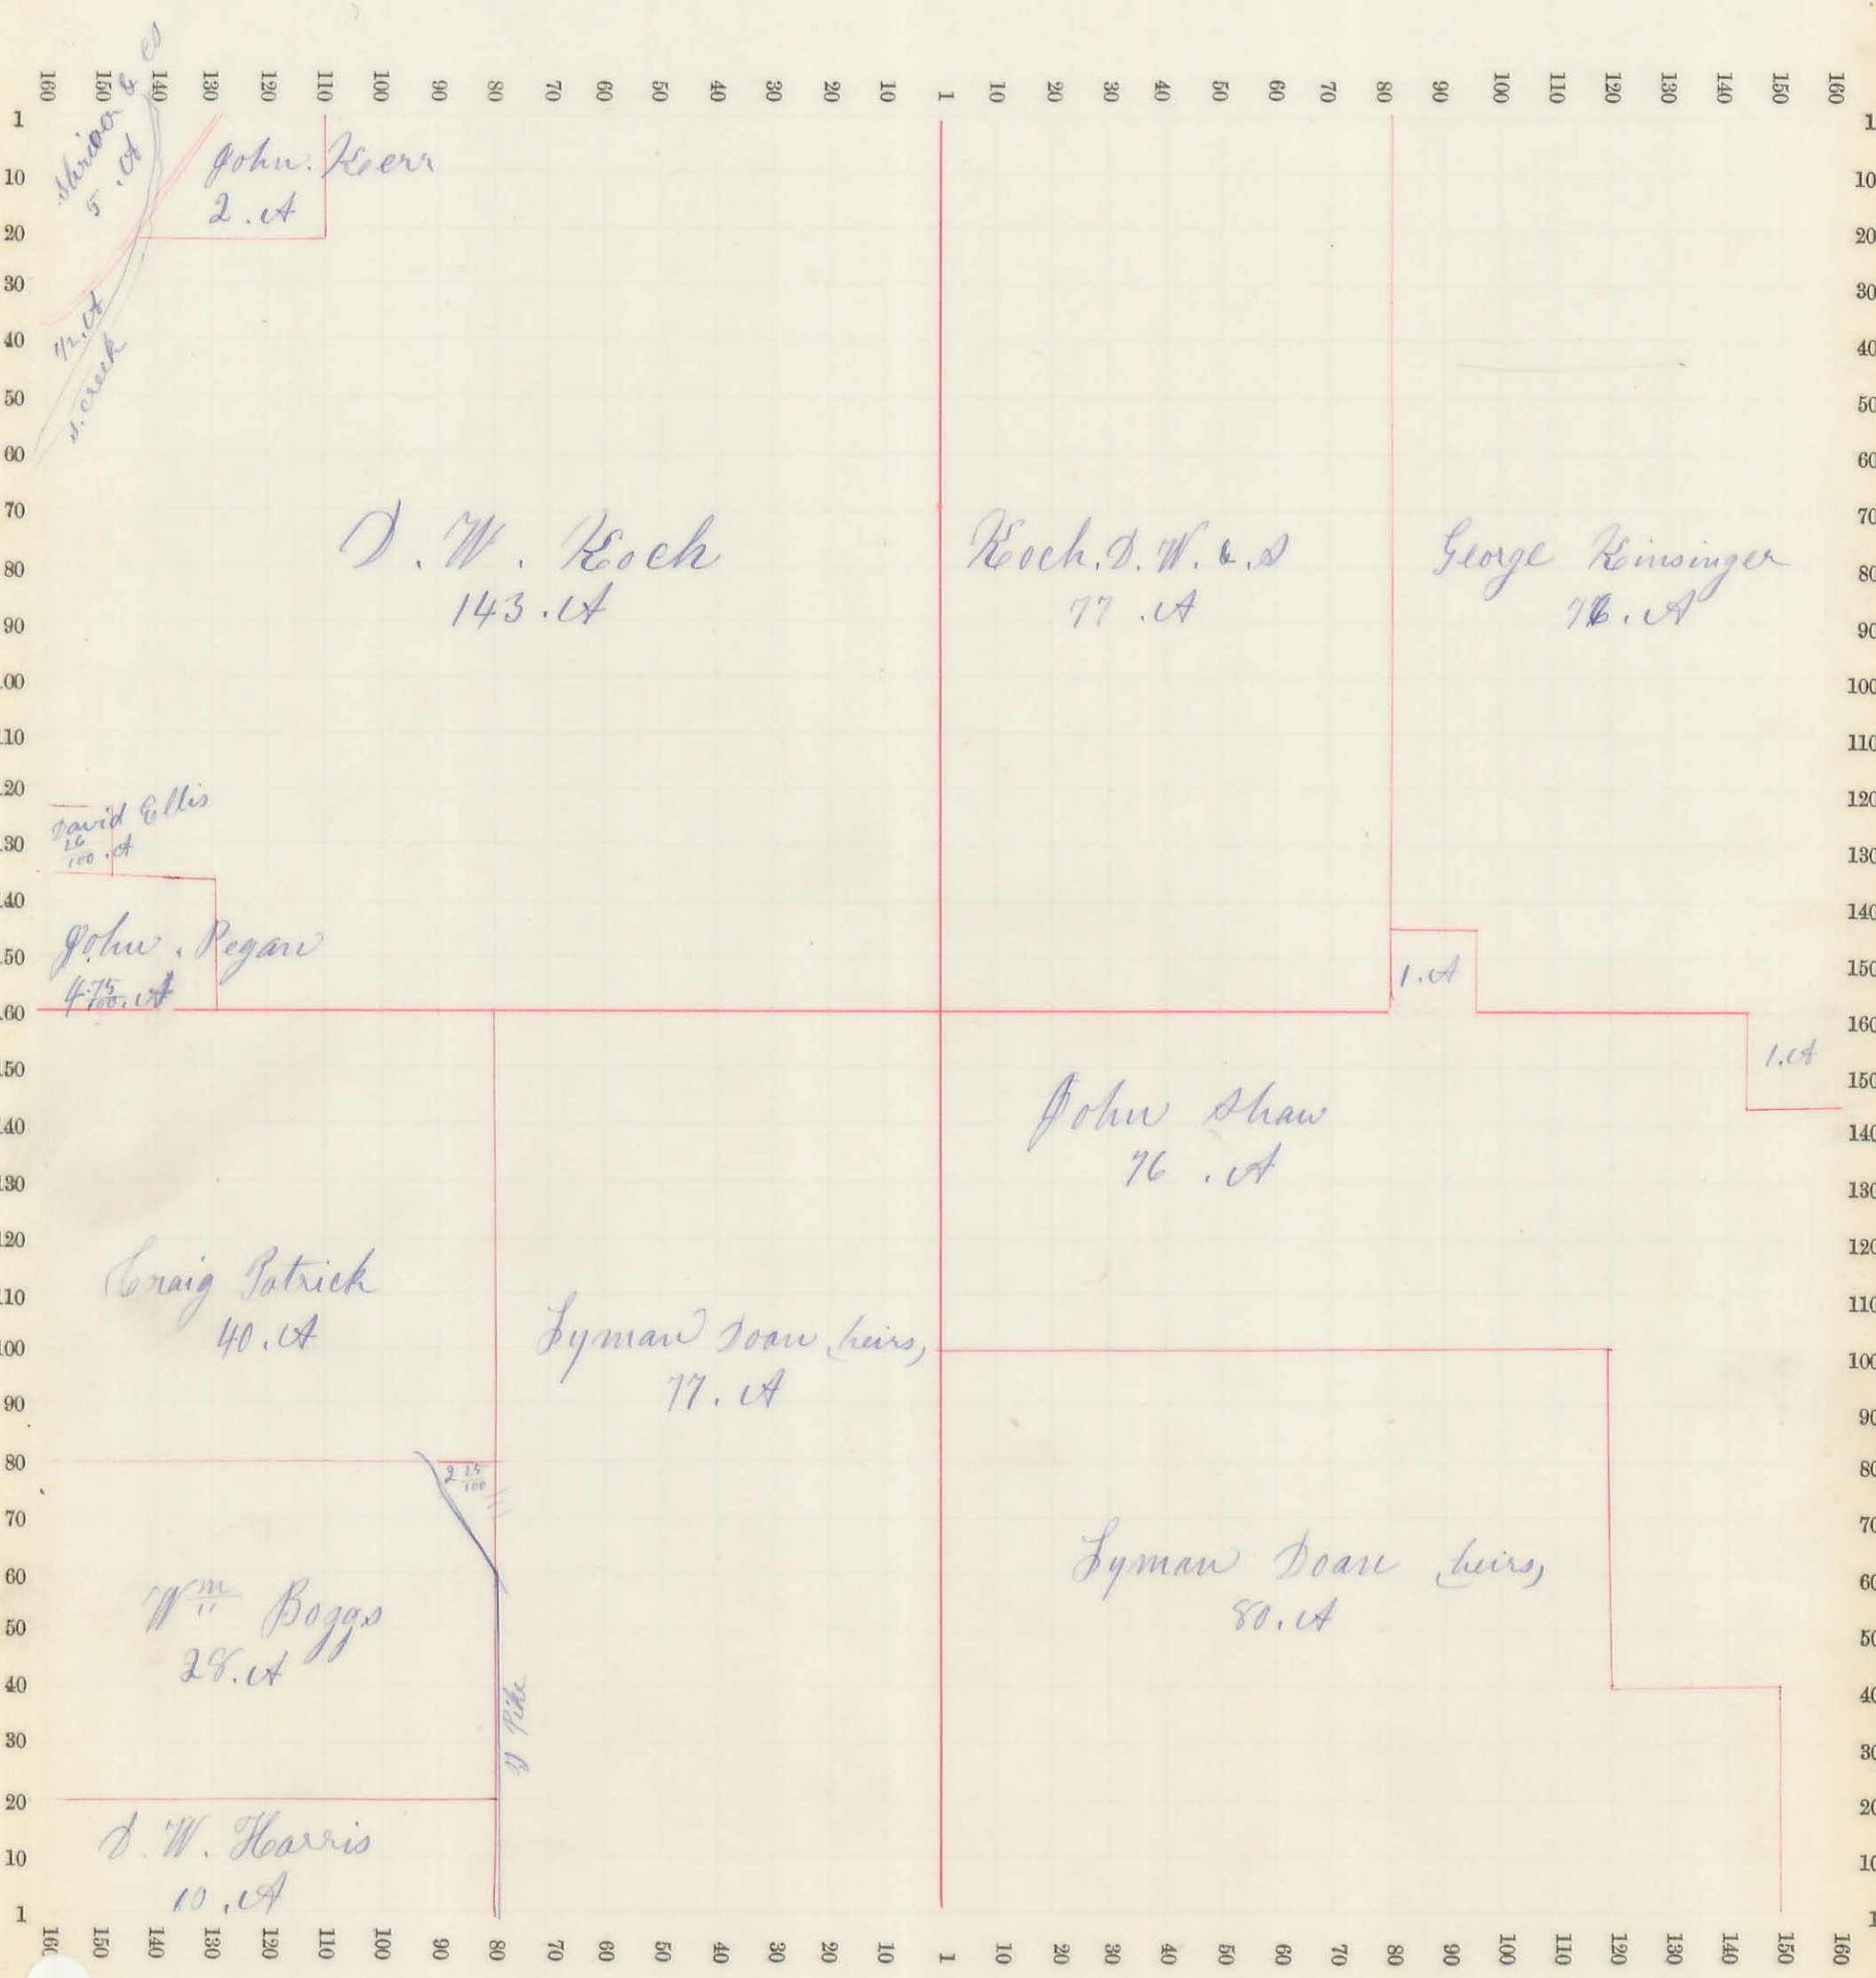 160 150 140 130 120 110 100 90 80 70 60 50 40 30 20 10 1 10 20 30 40 50 60 70 80 90 100 110 120 130 140 150 160
1 10 20 30 40 50 60 70 80 90 100 110 120 130 140 150 160 150 140 130 120 110 100 90 80 70 60 50 40 30 20 10 1
Shriver & Co
5 . A
John. Kerr
2 . A
1/2 . A
S. creek
D. W. Koch
143 . A
Koch. D. W. & . S
77 . A
George Kinsinger
76 . A
David Ellis
26/100 . A
John . Pegan
4 75/100 . A
1 . A
1 . A
John Shaw
76 . A
Craig Patrick
40 . A
Lyman Doan (heirs)
77 . A
2 25/100
Wm Boggs
28 . A
Pike
Lyman Doan (heirs)
80 . A
D. W. Harris
10 . A
1 10 20 30 40 50 60 70 80 90 100 110 120 130 140 150 160 150 140 130 120 110 100 90 80 70 60 50 40 30 20 10 1
160 150 140 130 120 110 100 90 80 70 60 50 40 30 20 10 1 10 20 30 40 50 60 70 80 90 100 110 120 130 140 150 160